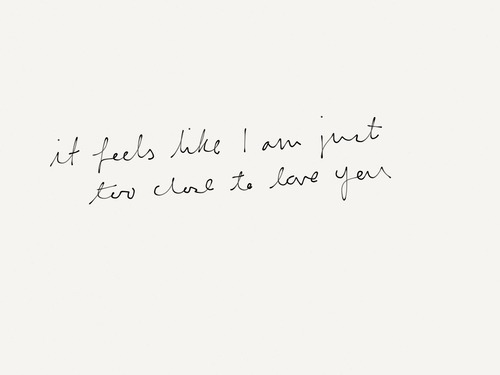 it feels like I am just
too close to love you